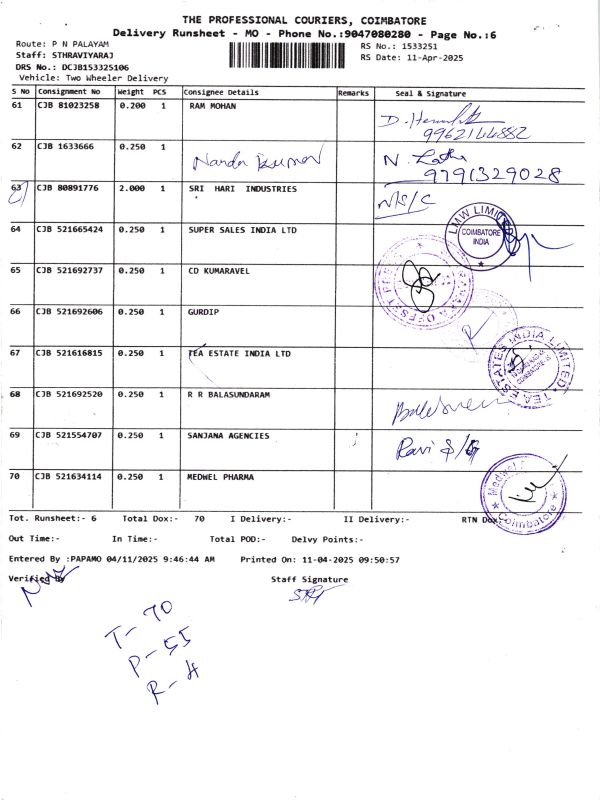 THE PROFESSIONAL COURIERS, COIMBATORE
Delivery Runsheet - MO - Phone No.:9047080280 - Page No.:6
Route: P N PALAYAM
RS No.: 1533251
Staff: STHRAVIYARAJ
RS Date: 11-Apr-2025
DRS No.: DCJB153325106
Vehicle: Two Wheeler Delivery
S No Consignment No Weight PCS Consignee Details Remarks Seal & Signature
61 CJB 81023258 0.200 1 RAM MOHAN
9962144882
62 CJB 1633666 0.250 1 Nanda Kumar N. Latha
9791329028
63 CJB 80891776 2.000 1 SRI HARI INDUSTRIES
64 CJB 521665424 0.250 1 SUPER SALES INDIA LTD
LMW LIMITED
COIMBATORE
INDIA
65 CJB 521692737 0.250 1 CD KUMARAVEL
66 CJB 521692606 0.250 1 GURDIP
67 CJB 521616815 0.250 1 TEA ESTATE INDIA LTD
TEA ESTATES INDIA LIMITED
68 CJB 521692520 0.250 1 R R BALASUNDARAM
69 CJB 521554707 0.250 1 SANJANA AGENCIES Ravi
70 CJB 521634114 0.250 1 MEDWEL PHARMA
Medwel
Coimbatore
Tot. Runsheet:- 6 Total Dox:- 70 I Delivery:- II Delivery:- RTN Dox:-
Out Time:- In Time:- Total POD:- Delvy Points:-
Entered By :PAPAMO 04/11/2025 9:46:44 AM Printed On: 11-04-2025 09:50:57
Verified By Staff Signature
T- 70
P- 55
R- 4